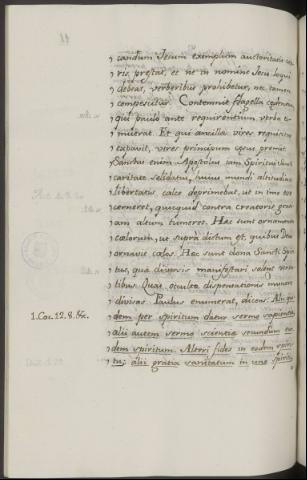 candum Jesum exemplum auctoritatis
ris, prestat, et ne in nomine Jesu loqui
debeat, verberibus prohibetur, nec tamen
compescitur. Contemnit flagella cedentium
qui paulo ante requirentium verba ti-
muerat. Et qui ancillae vires requisitus
expavit, vires principum cesus premit.
Sanctus enim Apostolus iam Spiritus Sancti
caritate solidatus, huius mundi altitudines
libertatis calce deprimebat, ut in imo
cerneret, quicquid contra creatoris grati
am aleum tumeret. Hac sunt ornamenta
caelorum, ut supra dictum est, quibus
ornavit caelos. Hac sunt dona Sancti Spiri
tus, quae diversis manifestari solent
tibus. Quae, occulta dispensationis munera
divisa Paulus enumerat, dicens: Alii qui
1. Cor. 12. 8. &c.
dem per spiritum datur sermo sapientiae
alii autem sermo scientiae secundum eun
dem spiritum. Alteri fides in eodem spiri
tu; alii gratia sanitatum in uno spiritu